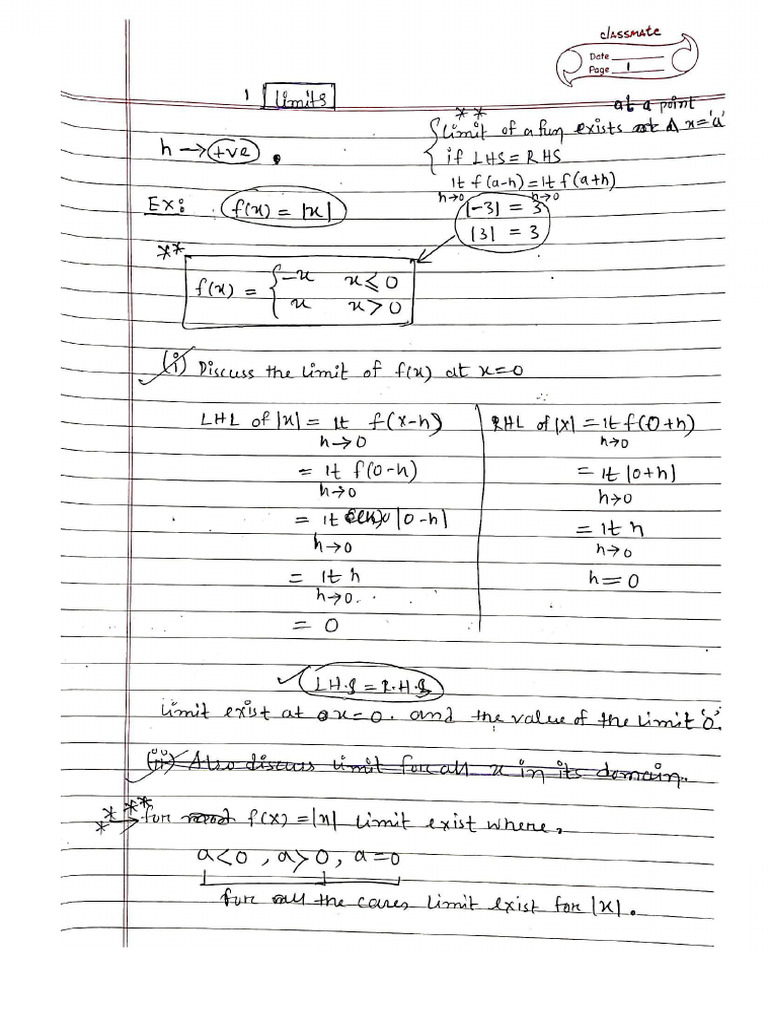 classmate
Date
Page 1
1 Limits
at a point
** {Limit of a fun exists at x='a'
if LHS = RHS
lt f(a-h) = lt f(a+h)
h→0 h→0
h → +ve .
Ex: f(x) = |x|
|-3| = 3
|3| = 3
**
f(x) = { -x x ≤ 0
x x > 0
(i) Discuss the limit of f(x) at x=0
LHL of |x| = lt f(x-h)
h→0
= lt f(0-h)
h→0
= lt |0-h|
h→0
= lt h
h→0.
= 0
RHL of |x| = lt f(0+h)
h→0
= lt |0+h|
h→0
= lt h
h→0
h = 0
✓ L.H.S = R.H.S
Limit exist at x=0. and the value of the limit '0'.
(ii) Also discuss limit for all x in its domain.
*** for f(x) = |x| limit exist where,
* →
a<0 , a>0 , a=0
for all the cases limit exist for |x|.